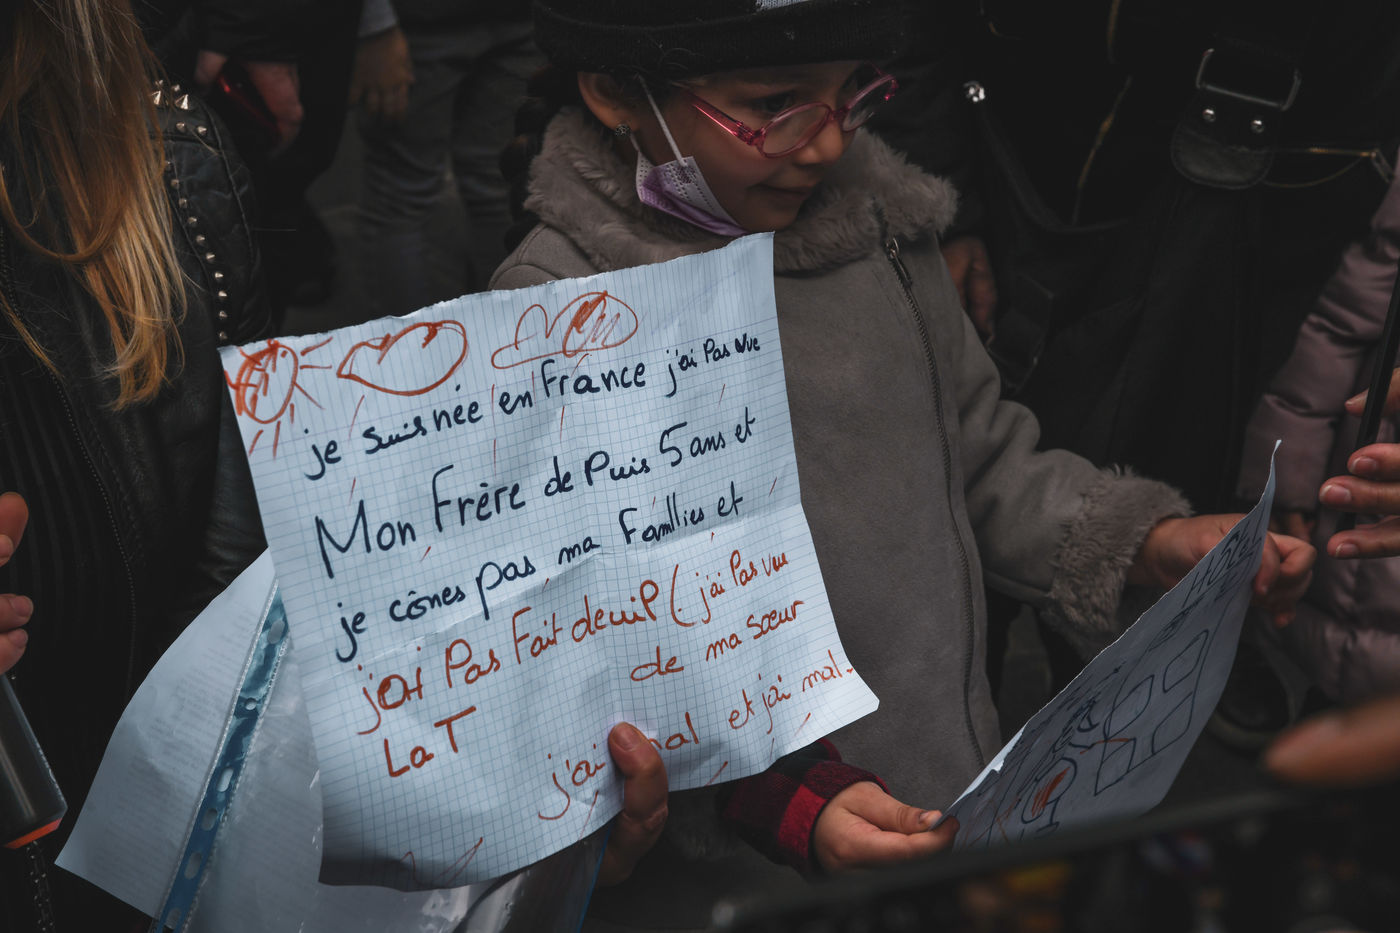 je suis née en France j'ai Pas vue
Mon Frère de Puis 5 ans et
je cônes pas ma Famllies et
j'ai Pas Fait deuil (j'ai Pas vue
de ma sœur
La T
j'ai mal et j'ai mal.